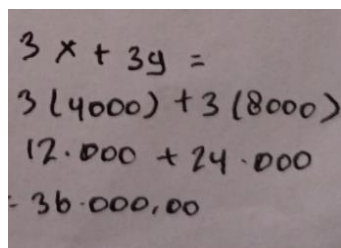 3x + 3y =
3(4000) + 3(8000)
12.000 + 24.000
= 36.000,00